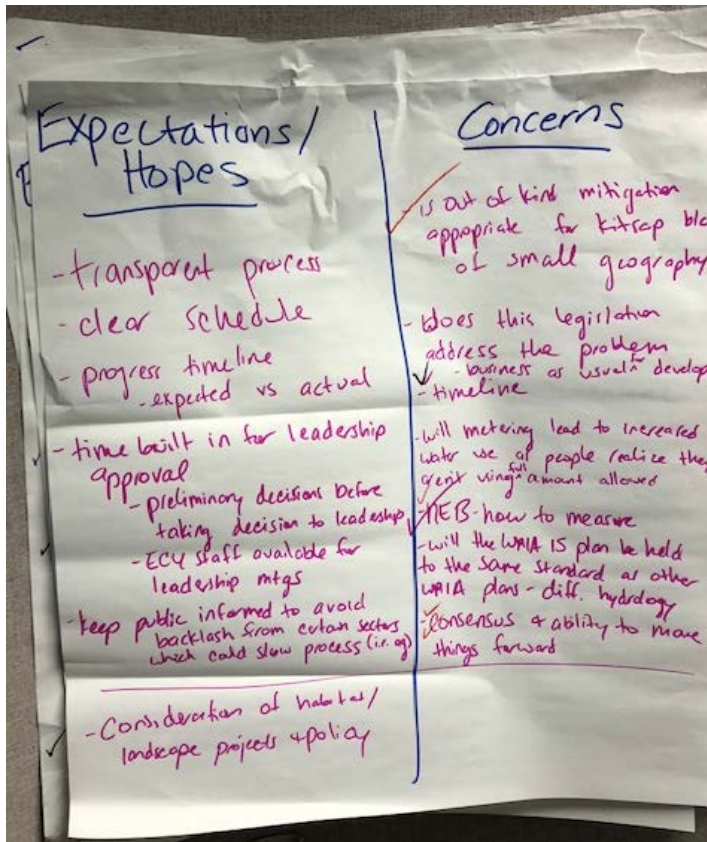 Expectations/
Hopes
- transparent process
- clear schedule
- progress timeline
- expected vs actual
- time built in for leadership
approval
- preliminary decisions before
taking decision to leadership
- ECY staff available for
leadership mtgs
- keep public informed to avoid
backlash from certain sectors
which could slow process (i.e. ag)
- Consideration of habitat/
landscape projects + policy
Concerns
- is out of kind mitigation
appopriate for Kitsap b/c
of small geography
- Does this legislation
address the problem
- business as usual for develop
- timeline
- will metering lead to increased
water use as people realize they
aren't using full amount allowed
- NEB - how to measure
- will the WRIA 15 plan be held
to the same standard as other
WRIA plans - diff. hydrology
- consensus + ability to move
things forward